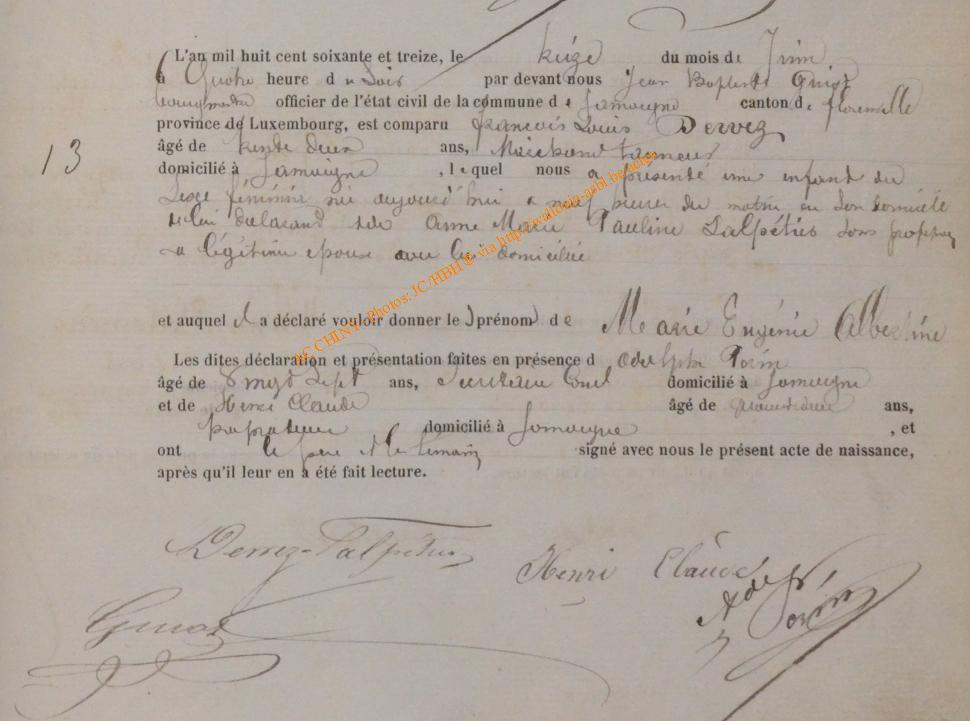 L'an mil huit cent soixante et treize, le treize du mois de Juin
à Quatre heure du Soir par devant nous Jean Baptiste
bourgmestre officier de l'état civil de la commune de Jamoigne canton de florenville
province de Luxembourg, est comparu françois Louis Dervez
13
âgé de trente deux ans, Marchand tanneur
domicilié à Jamoigne, lequel nous a présenté une enfant du
Sexe féminin née aujourd'hui a neuf heures du matin en son domicile
de lui déclarant et de Anne Marie Pauline Salpéties sans profession
sa légitime épouse avec lui domiciliée
et auquel il a déclaré vouloir donner le prénom de Marie Eugénie Albertine
Les dites déclaration et présentation faites en présence d adolphe Porin
âgé de Vingt Sept ans, Secrétaire domicilié à Jamoigne
et de Henri Claude âgé de ans,
domicilié à Jamoigne, et
ont le père et les témoins signé avec nous le présent acte de naissance,
après qu'il leur en a été fait lecture.
Dervez-Salpéties
Henri Claude
Ade Porin
AC CHINY - Photos: JC/HBH © via http://wallonia-asbl.be/actes